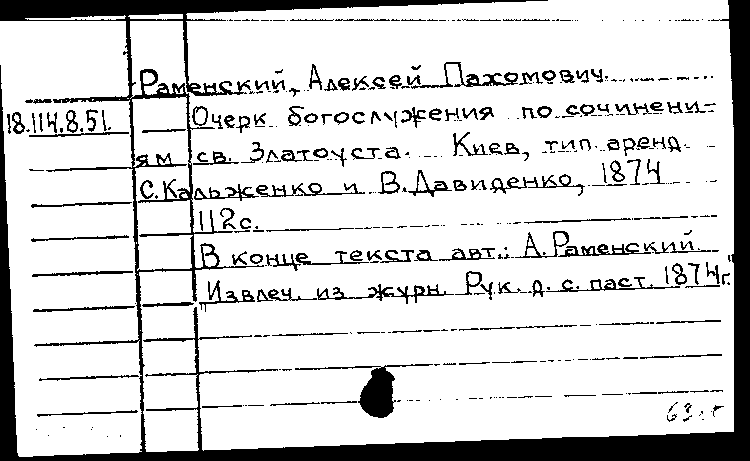 Раменский, Алексей Пахомович.
18.114.8.51. Очерк богослужения по сочинени-
ям св. Златоуста. Киев, тип. аренд.
С. Кальженко и В. Давиденко, 1874
112 с.
В конце текста авт.: А. Раменский.
"Извлеч. из журн. Рук. д. с. паст. 1874 г."